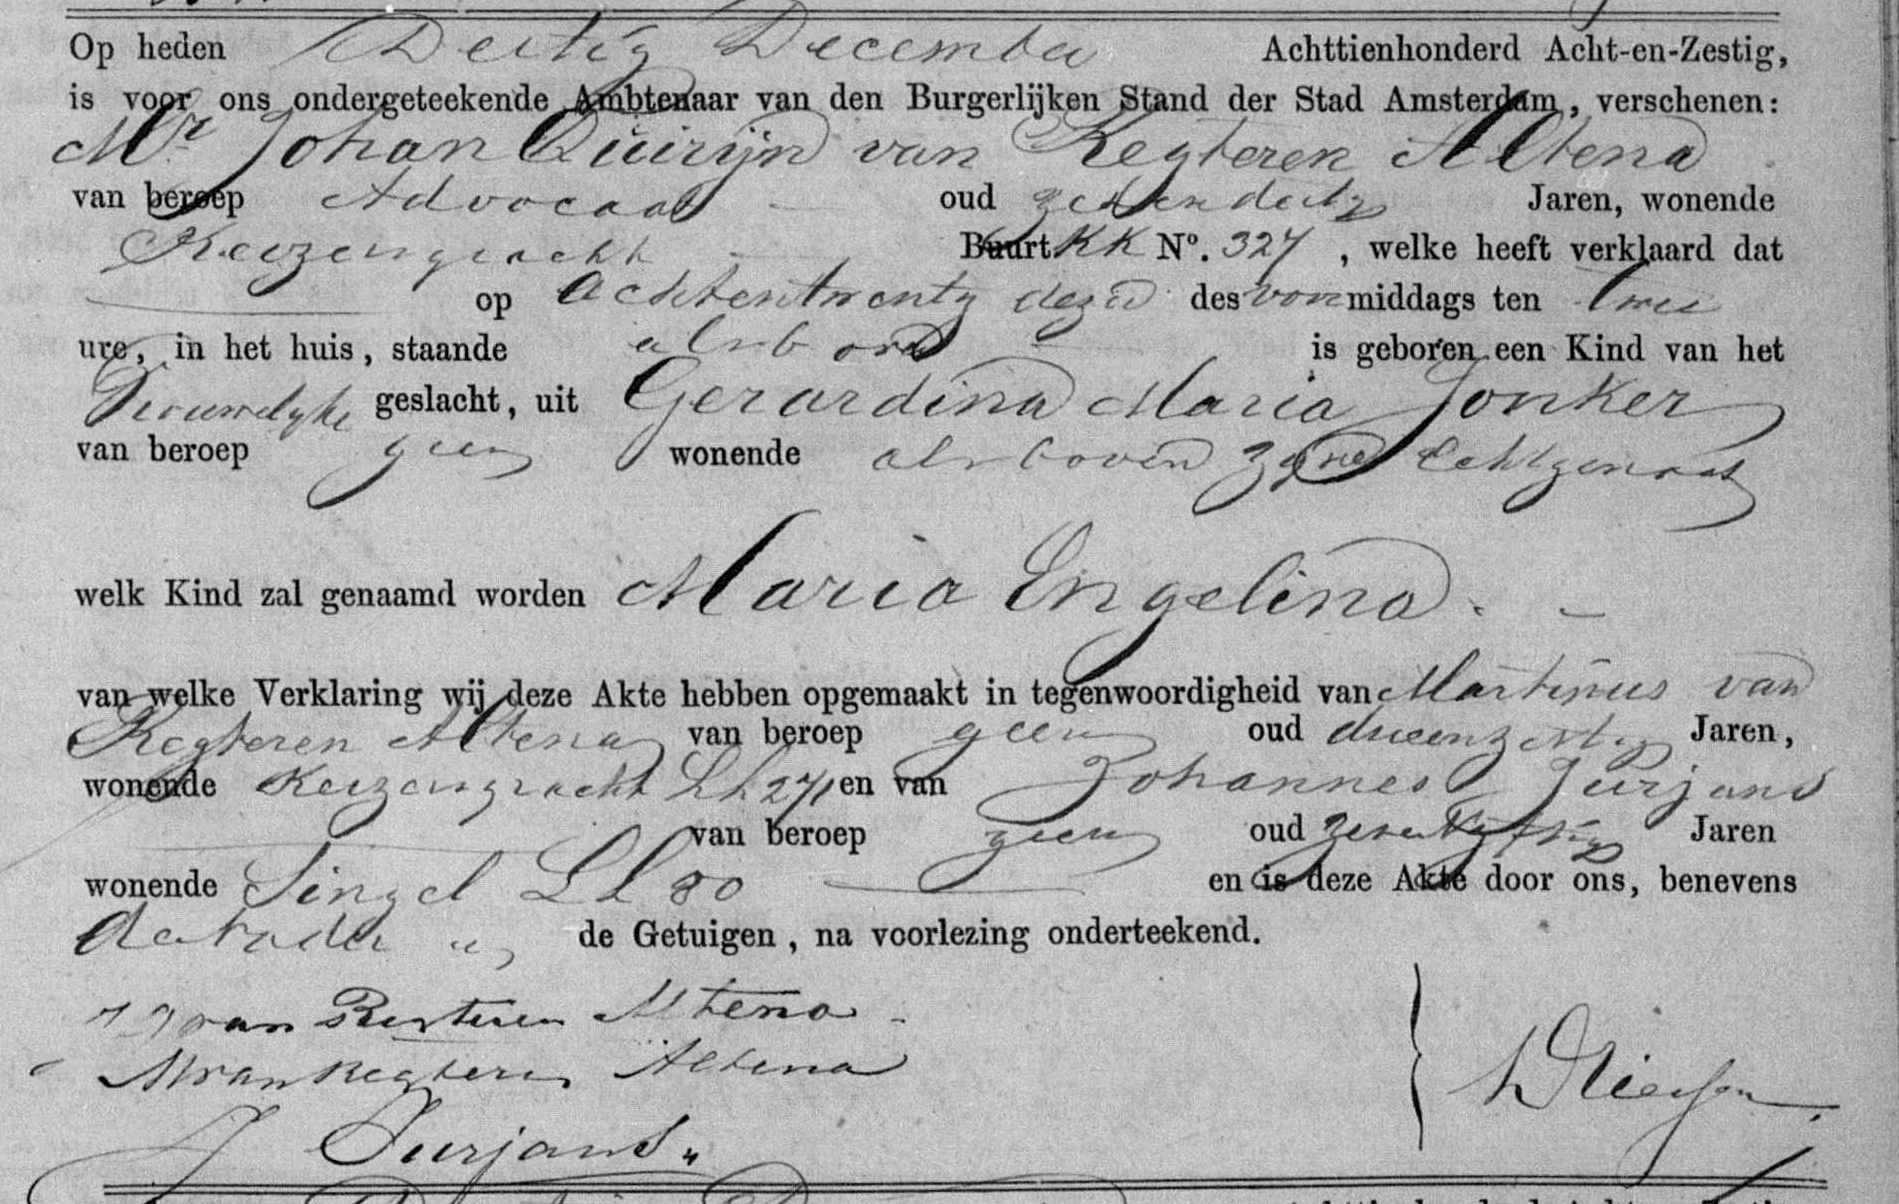 Op heden Dertig December Achttienhonderd Acht-en-Zestig,
is voor ons ondergeteekende Ambtenaar van den Burgerlijken Stand der Stad Amsterdam, verschenen:
Mr Johan Quirijn van Regteren Altena
van beroep Advocaat oud zevendertig Jaren, wonende
Keizersgracht Buurt KK No. 327, welke heeft verklaard dat
op Achtentwintig dezer des voormiddags ten twee
ure, in het huis, staande alsboven is geboren een Kind van het
Vrouwelijke geslacht, uit Gerardina Maria Jonker
van beroep geen wonende alsboven zijne Echtgenoot
welk Kind zal genaamd worden Maria Engelina.
van welke Verklaring wij deze Akte hebben opgemaakt in tegenwoordigheid van Martinus van
Regteren Altena van beroep geen oud Jaren,
wonende Keizersgracht LL 271 en van Johannes Jurjans
van beroep geen oud Jaren
wonende Singel LL 80 en is deze Akte door ons, benevens
de Vader en de Getuigen, na voorlezing onderteekend.
van Regteren Altena
M van Regteren Altena
J Jurjans